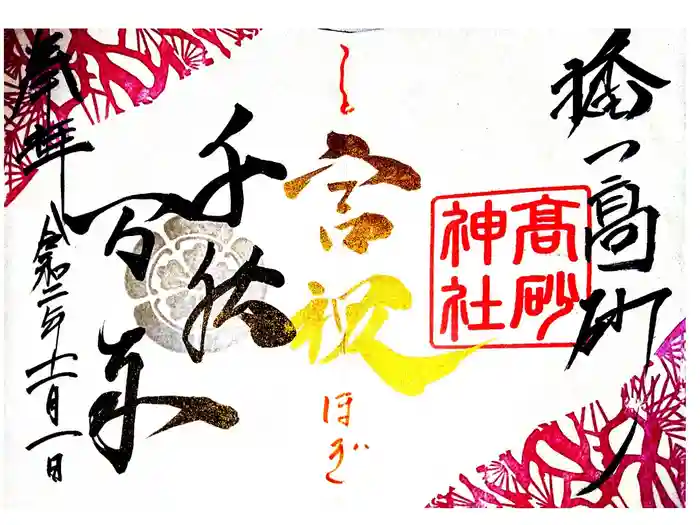 播
高砂
高砂
神社
こと
言祝
ほぎ
千秋
万
奉拝
令和二年十一月一日